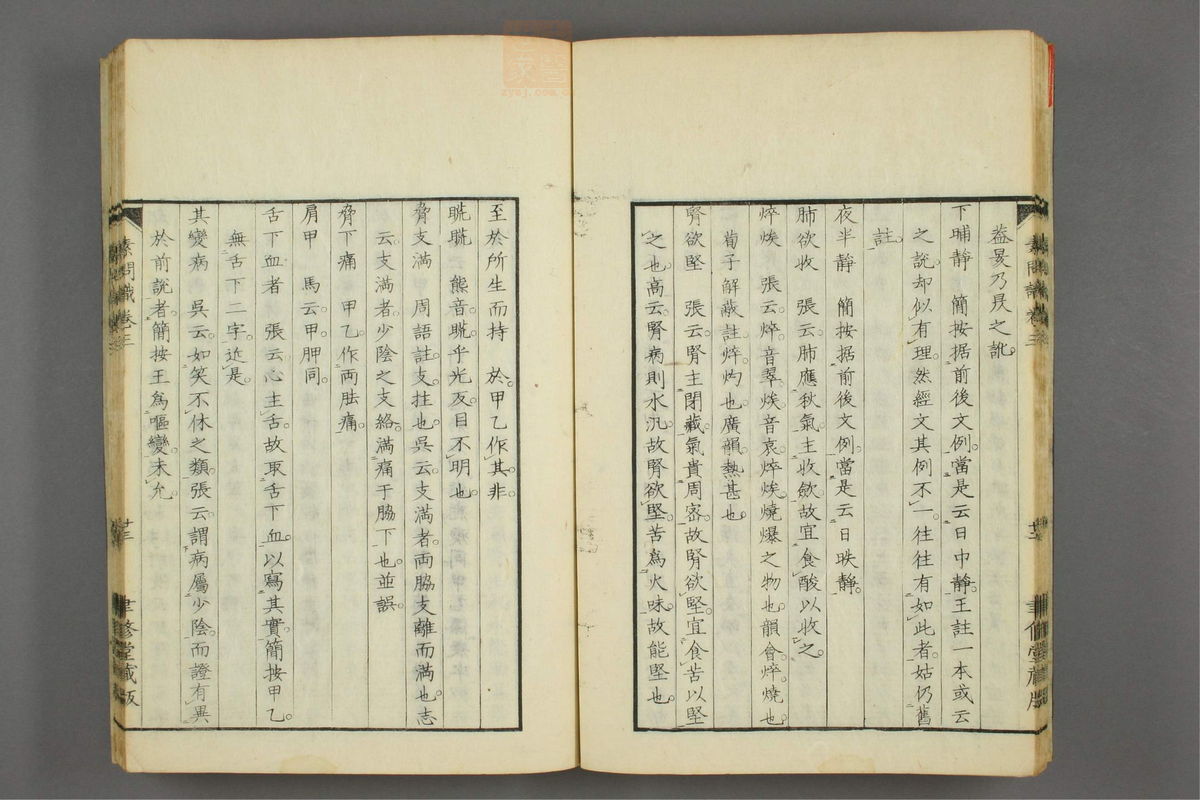 益晏乃昃之訛
下晡靜　簡按据前後文例當是云日中靜王註一本或云
之說却似有理然經文其例不一往往有如此者姑仍舊
註
夜半靜　簡按据前後文例當是云日昳靜
肺欲收　張云肺應秋氣主收斂故宜食酸以收之
焠㶼　張云焠音翠㶼音哀焠㶼燒爆之物也韻會焠燒也
荀子解蔽註焠灼也廣韻熱甚也
腎欲堅　張云腎主閉藏氣貴周密故腎欲堅宜食苦以堅
之也高云腎病則水汎故腎欲堅苦爲火味故能堅也
至於所生而持　於甲乙作其非
䀮䀮　熊音䀮乎光反目不明也
脅支滿　周語註支拄也吳云支滿者両脇支離而滿也志
云支滿者少陰之支絡滿痛于脇下也並誤
脅下痛　甲乙作両胠痛
肩甲　馬云甲胛同
舌下血者　張云心主舌故取舌下血以寫其實簡按甲乙
無舌下二字近是
其變病　吳云如笑不休之類張云謂病屬少陰而證有異
於前說者簡按王爲嘔變未允
素問識卷三
廿三
聿修堂藏版